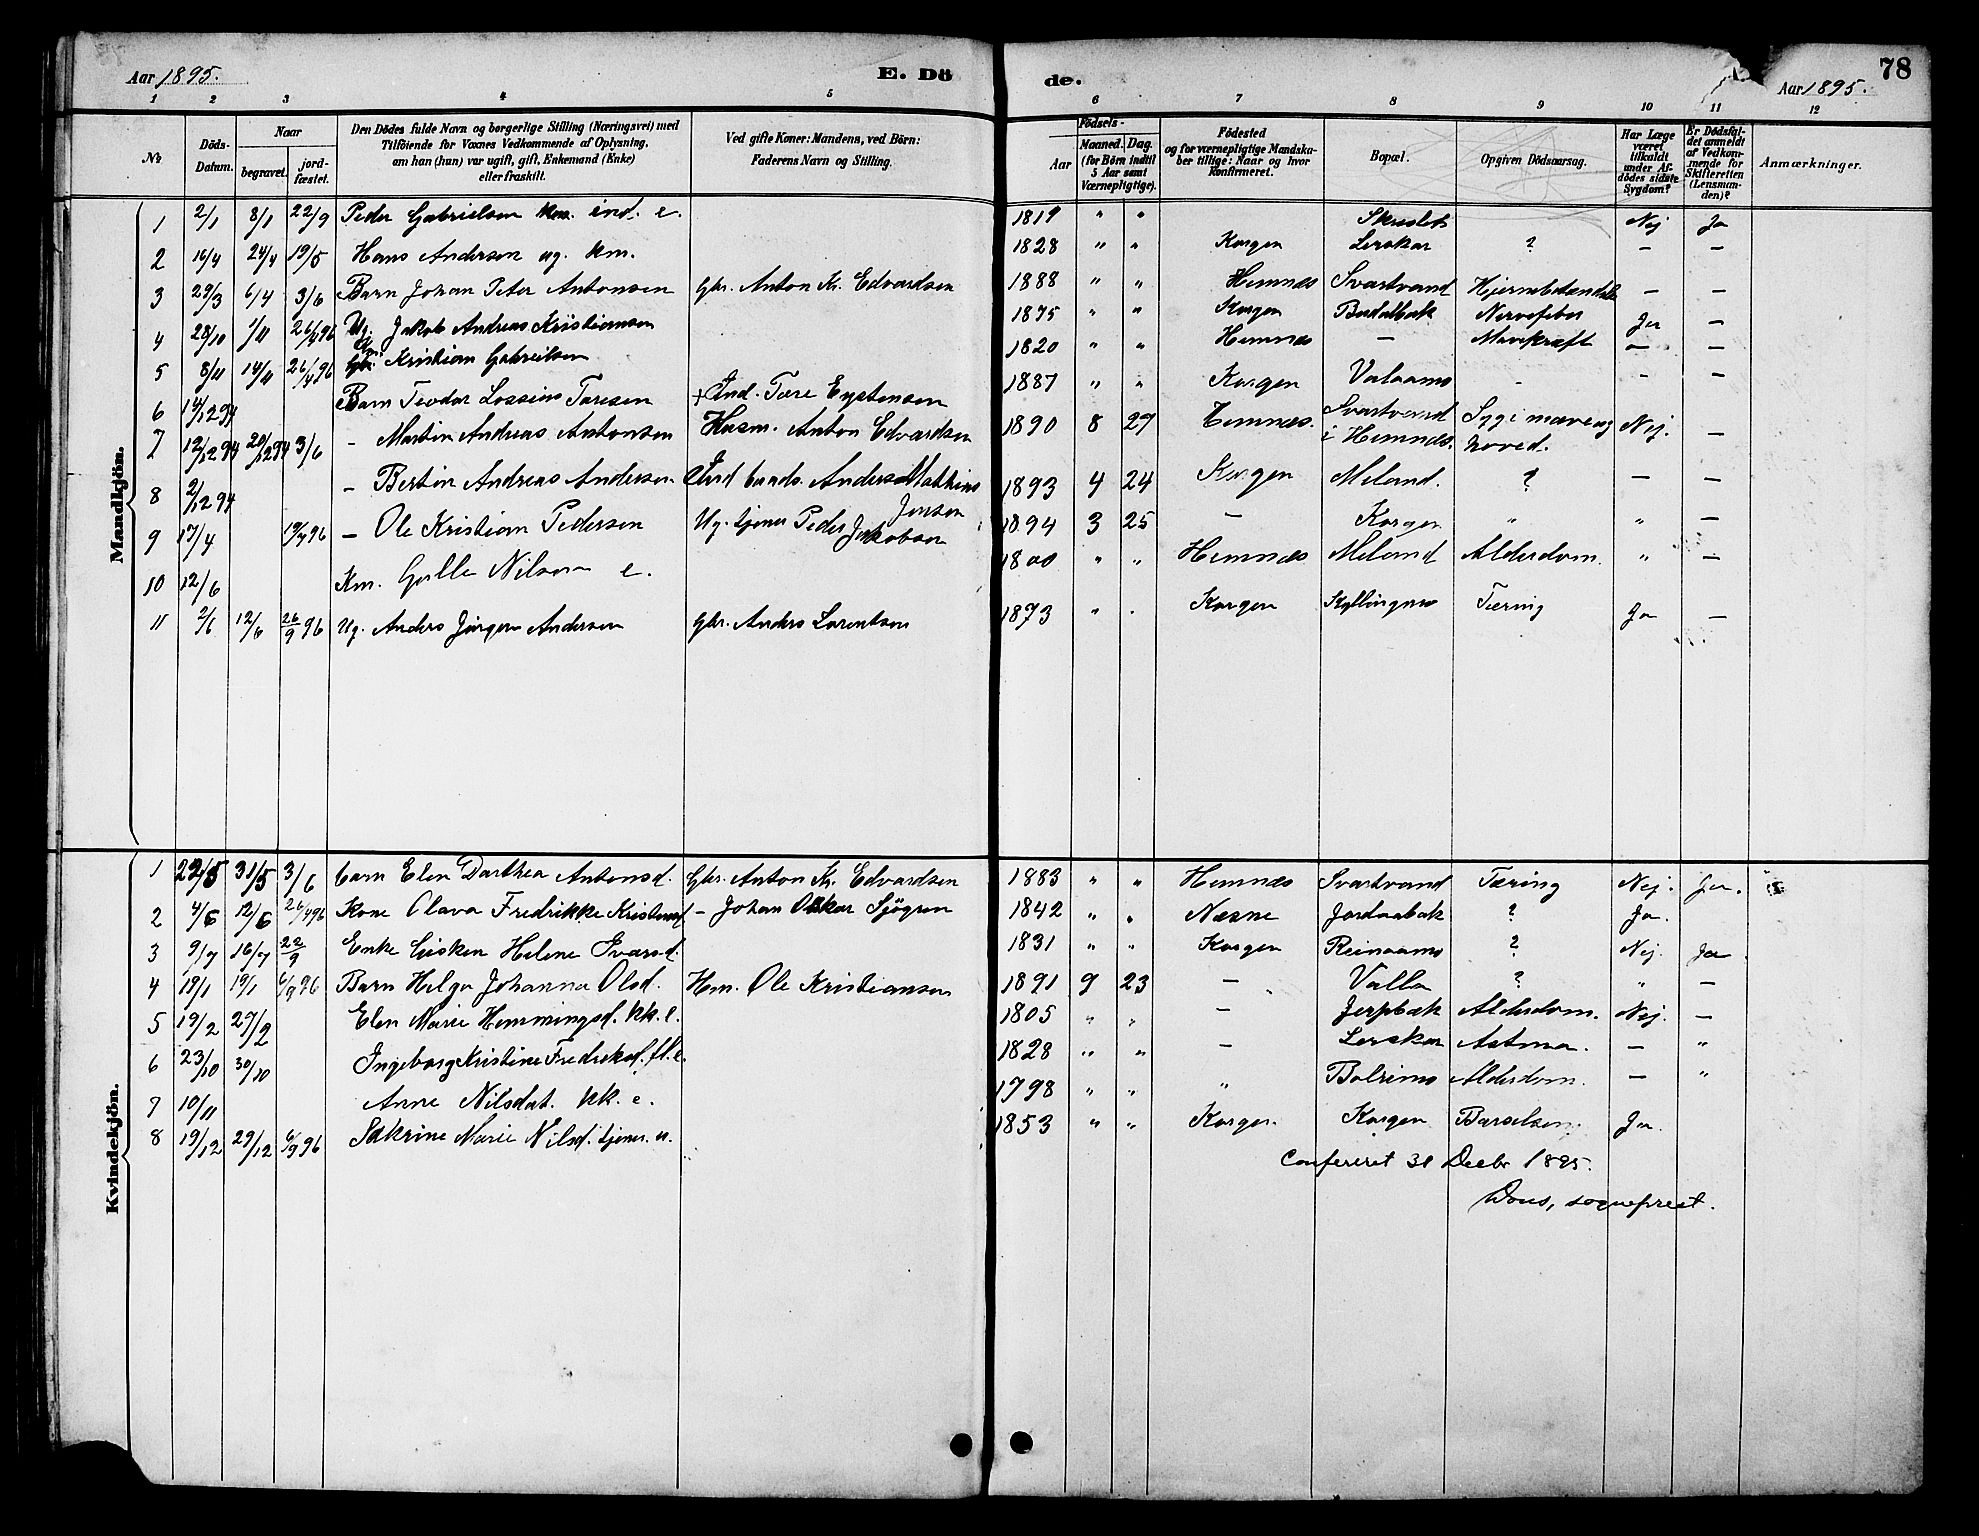 Aar 1895. E. Dö de. Aar 1895. 78
1 2 3 4 5 6 7 8 9 10 11 12
No.
Döds-Datum.
Naar
begravet.
jord-fæstet.
Den Dödes fulde Navn og borgerlige Stilling (Næringsvei) med
Tilföiende for Voxnes Vedkommende af Oplysning,
om han (hun) var ugift, gift, Enkemand (Enke)
eller fraskilt.
Ved gifte Koner: Mandens, ved Börn:
Faderens Navn og Stilling.
Födsels-
Aar
Maaned. Dag.
(for Börn indtil
5 Aar samt
Værnepligtige).
Födested
og for værnepligtige Mandska-
ber tillige: Naar og hvor
konfirmeret.
Bopæl.
Opgiven Dödsaarsag.
Har Læge
været
tilkaldt
under Af-
dödes sidste
Sygdom?
Er Dödsfal-
det anmeldt
af Vedkom-
mende for
Skifteretten
(Lensman-
den)?
Anmærkninger.
Mandkjön.
1 2/1 8/1 22/9 Peder Gabrielsen km. ind. e. 1819 " " Nej Ja
2 16/4 24/4 19/5 Hans Andersen ug. km. 1828 " " Korgen Lerskar ? — —
3 29/3 6/4 3/6 Barn Johan Peter Antonsen Gbr. Anton Kr. Edvardsen 1888 " " Hemnæs Svartvand — —
4 28/10 1/11 26/4 96 Ug. Jakob Andreas Kristiansen 1875 " " Korgen Nervefeber Ja —
5 8/11 14/11 26/4 96 Kristian Gabrielsen 1820 " " Hemnæs — Mavekræft — —
6 14/12 94 Barn Teodor Toresen + Ind. Tore Eystensen 1887 " " Korgen - - —
7 12/12 94 20/12 94 3/6 - Martin Andreas Antonsen Husm. Anton Edvardsen 1890 8 27 Hemnæs. Svartvand i Hemnæs. Syg i mave og hoved. Nej. —
8 2/12 94 - Bertin Andreas Andersen Ind Anders Mathias Jensen 1893 4 24 Korgen Meland. ? — —
9 17/4 19/7 96 — Ole Kristian Pedersen Ug. tjener Peder Jakobsen 1894 3 25 — Korgen " " —
10 12/6 Km. Nilsen e. 1800 " " Hemnæs Meland Alderdom. " —
11 2/6 12/6 26/9 96 Ug. Anders Jörgen Andersen Gbr. Anders Lorentsen 1873 " . Korgen Tæring Ja —
Kvindekjön.
1 22/5 31/5 3/6 barn Elen Dorthea Antonsd. Gbr. Anton Kr. Edvardsen 1883 " " Hemnæs Svartvand Tæring Nej. Ja.
2 4/6 12/6 26/4 96 Kone Olava Fredrikke Kristensd - Johan Oskar Sjögren 1842 " " Næsne ? Ja.
3 9/7 16/7 22/9 Enke Helene Ivarsd. 1831 " " Korgen Reinaamo ? Nej. Ja
4 19/1 19/1 6/9 96 Barn Helga Johanna Olsd. Hm. Ole Kristiansen 1891 9 23 — Valla ? " —
5 19/2 27/2 Elen Marie Hemmingsd. kk. e. 1805 " " — Jerpbæk Alderdom. Nej. —
6 23/10 30/10 Ingeborg Kristine Fredriksd. fl. e. 1828 " " — Lerskar Astma. — "
7 10/11 Anne Nilsdat. kk. e. 1798 " " " Alderdom. — "
8 19/12 29/12 6/9 96 Sakrine Marie Nilsd. tjener. u. 1853 " " Korgen. Korgen Barselsen. Ja.
Confereret 31 Decbr 1895.
sogneprest.